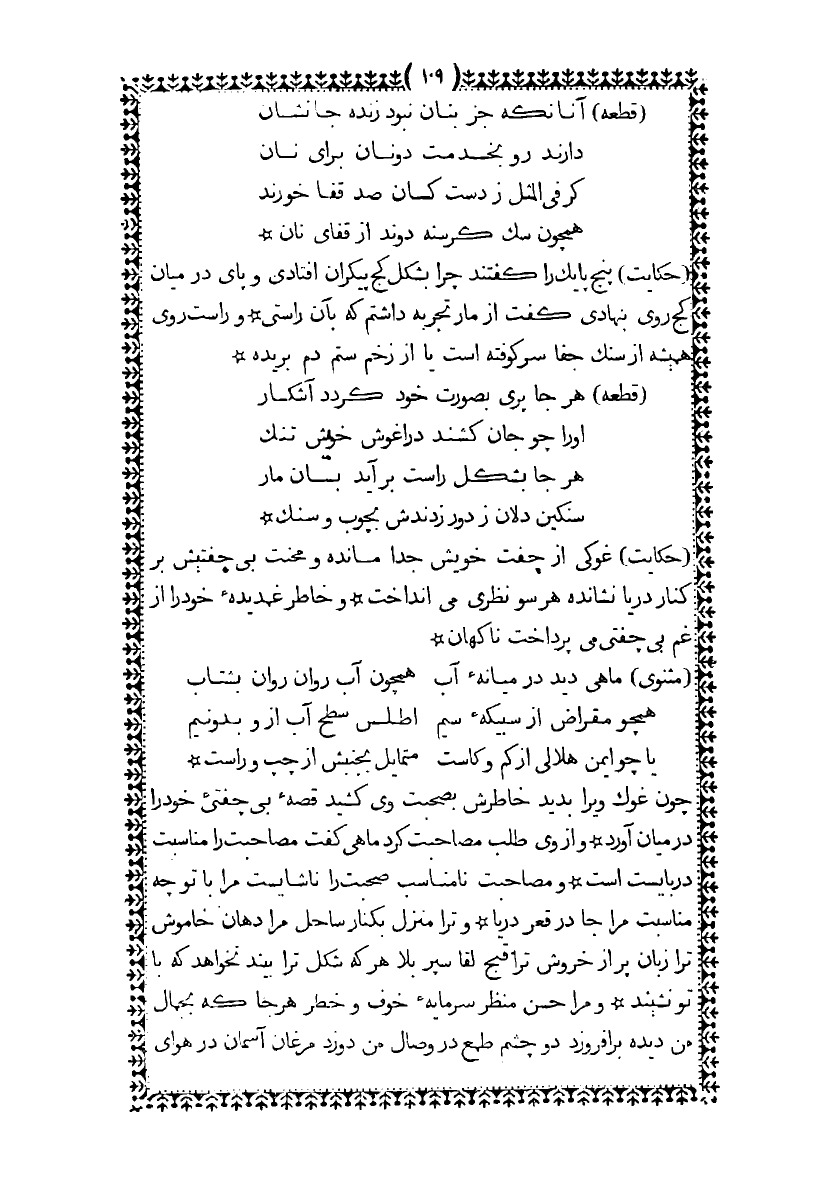 ( ۱۰۹ )
(قطعه) آنانکه جز بنان نبود زنده جانشان
دارند رو بخدمت دونان برای نان
کر فی المثل ز دست کسان صد قفا خورند
همچون سك کرسنه دوند از قفای نان ☆
(حکایت) پنج پایك را کفتند چرا بشکل کج پیکران افتادی و پای در میان
کج روی نهادی کفت از مار تجربه داشتم که بآن راستی ☆ و راست روی
همیشه از سنك جفا سر کوفته است یا از زخم ستم دم بریده ☆
(قطعه) هر جا پری بصورت خود کردد آشکار
اورا چو جان کشند در اغوش خویش تنك
هر جا بشکل راست بر آید بسان مار
سنکین دلان ز دور زدندش بچوب و سنك ☆
(حکایت) غوکی از چفت خویش جدا مانده و محنت بی چفتیش بر
کنار دریا نشانده هر سو نظری می انداخت ☆ و خاطر غمدیدهٔ خودرا از
غم بی چفتی می پرداخت ناکهان ☆
(مثنوی) ماهی دید در میانهٔ آب همچون آب روان روان بشتاب
همچو مقراض از سبیکهٔ سیم اطلس سطح آب از و بدو نیم
یا چو ایمن هلالی از کم وکاست متمایل بجنبش از چپ و راست ☆
چون غوك ویرا بدید خاطرش بصحبت وی کشید قصهٔ بی چفتئ خودرا
در میان آورد ☆ و از وی طلب مصاحبت کرد ماهی کفت مصاحبت را مناسبت
دربایست است ☆ و مصاحبت نامناسب صحبت را ناشایست مرا با تو چه
مناسبت مرا جا در قعر دریا ☆ و ترا منزل بکنار ساحل مرا دهان خاموش
ترا زبان پر از خروش ترا قبح لقا سپر بلا هر که شکل ترا بیند نخواهد که با
تو نشیند ☆ و مرا حسن منظر سرمایهٔ خوف و خطر هرجا که بجمال
من دیده برافروزد دو چشم طمع در وصال من دوزد مرغان آسمان در هوای